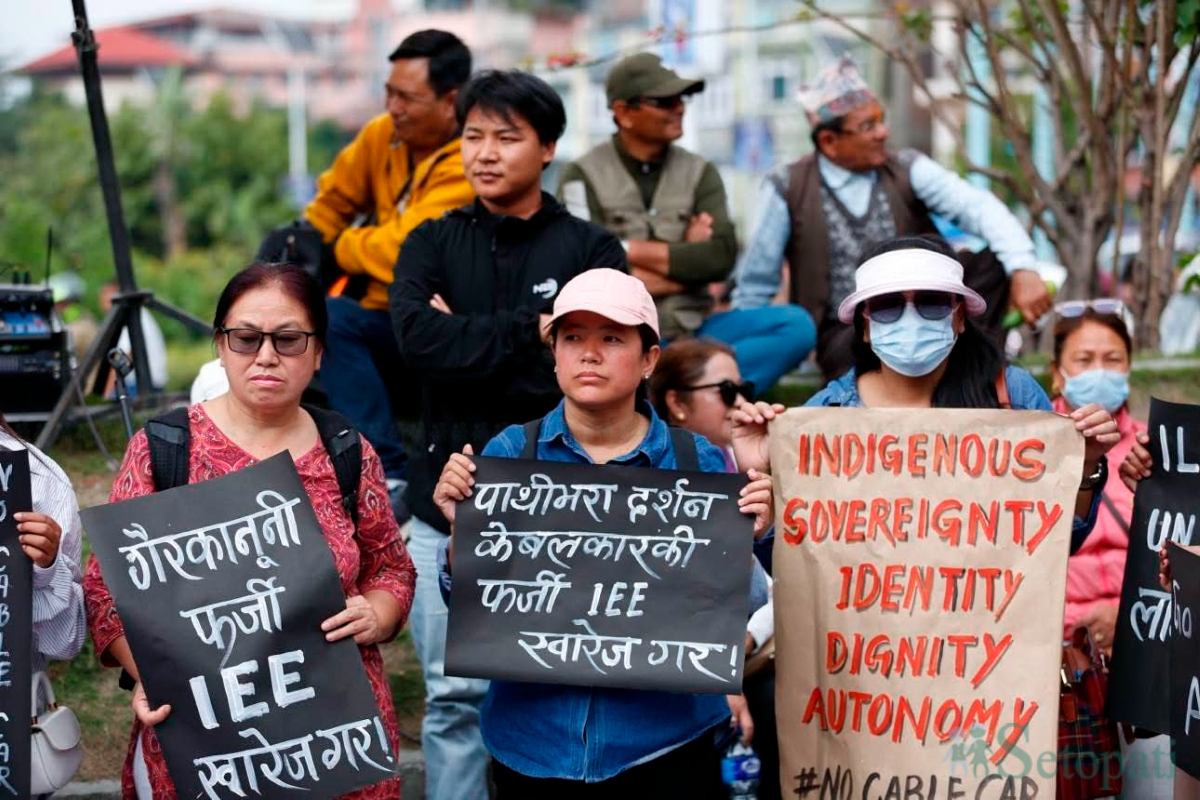 गैरकानूनी
फर्जी
IEE
खारेज गर!
पाथीभरा दर्शन
केबलकारकी
फर्जी IEE
खारेज गर!
INDIGENOUS
SOVEREIGNTY
IDENTITY
DIGNITY
AUTONOMY
#NO CABLE CAR
CABLE
CAR
IL
UN
Setopati